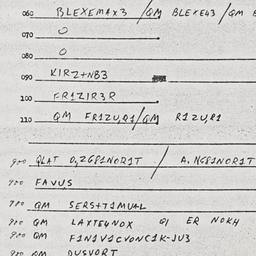 060 BLEXEMAX3 / QM BLEXE43 / QM
070 O
080 O
090 KIRZ+NB3
100 FR1ZIR3R
110 QM FR1ZU,R1/QM R1ZU,R1
900 QLAT O,2GP1NOR1T / A.NGP1NOR1T
900 FAVUS
900 QM SERS+T1MUAL
900 QM LAXTE4NOX O1 ER NOKH
900 QM F1N1V1CVONC1K-JU3
900 QM DUSVORT